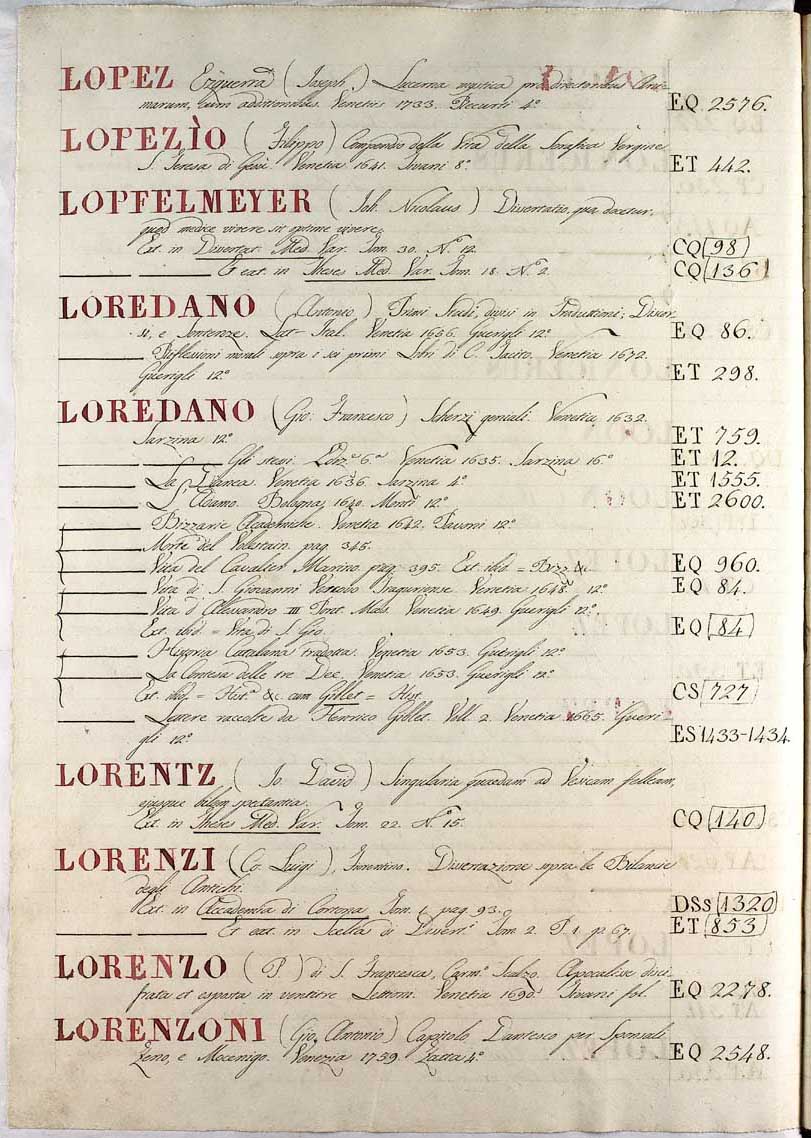 LOPEZ Ezquerra (Joseph) Lucerna mystica pro directoribus Ani-
marum, cum additionibus. Venetiis 1733. Recurti 4.° EQ 2576.
LOPEZÌO (Filippo) Compendio della Vita della Serafica Vergine
S. Teresa di Gesù. Venetia 1641. Ivani 8.° ET 442.
LOPFELMEYER (Joh. Nicolaus) Dissertatio, qua docetur,
quod medice vivere sit optime vivere.
Ext. in Dissertat. Med. Var. Tom. 30. N.° 12. CQ 98
Et ext. in Theses Med. Var. Tom. 18. N.° 2. CQ 136
LOREDANO (Antonio) Primi Studi, divisi in Traduttioni, Discor-
si, e Sentenze. Lat-Ital. Venetia 1656. Guerigli 12.° EQ 86.
Riflessioni morali sopra i sei primi Libri di C. Tacito. Venetia 1672.
Guerigli 12.° ET 298.
LOREDANO (Gio: Francesco) Scherzi geniali. Venetia 1632.
Sarzina 12.° ET 759.
Gli stessi. Ediz.e 6.a Venetia 1635. Sarzina 16.° ET 12.
La Dianea. Venetia 1636. Sarzina 4.° ET 1555.
L'Adamo. Bologna 1640. Monti 12.° ET 2600.
Bizzarie Academiche. Venetia 1642. Pavoni 12.°
Morte del Volestain. pag. 345.
Vita del Cavalier Marino. pag. 395. Ext. ibid = Bizz. &c. EQ 960.
Vita di S. Giovanni Vescovo Traguriense. Venetia 1648. 12.° EQ 84.
Vita d'Alessandro III Pont. Mass. Venetia 1649. Guerigli 12.°
Ext. ibid. = Vita di S. Gio. EQ 84
Historia Catalana tradotta. Venetia 1653. Guerigli 12.°
La Contesa delle tre Dee. Venetia 1653. Guerigli 12.°
Ext. ibid. = Hist.a &c. cum Gillet = Hist. CS 727
Lettere raccolte da Henrico Giblet. Voll. 2. Venetia 1665. Gueri-
gli 12.° ES 1433-1434.
LORENTZ (Jo. David) Singularia quaedam ad Vesicam felleam,
ejusque bilem spectantia.
Ext. in Theses Med. Var. Tom. 22. N.° 15. CQ 140
LORENZI (Co. Luigi), Fiorentino. Dissertazione sopra le Bilancie
degli Antichi.
Ext. in Accademia di Cortona Tom. 1. pag. 93. DSs 1320
Et ext. in Scelta di Dissert.i Tom. 2. P. 1. p. 67. ET 853
LORENZO (P.) di S. Francesca, Carm.o Scalzo. Apocalisse disci-
frata et esposta in ventitre Lettioni. Venetia 1690. Ivani fol. EQ 2278.
LORENZONI (Gio. Antonio) Capitolo Dantesco per Sponsali
Zeno, e Mocenigo. Venezia 1759. Zatta 4.° EQ 2548.